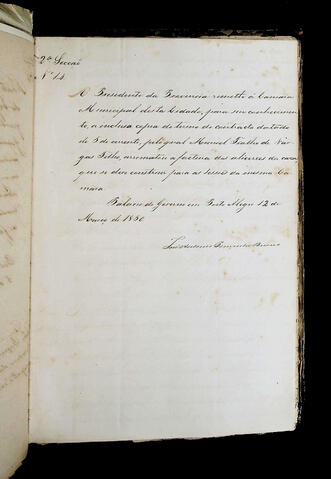 2ª Secção
Nº 14
O Presidente da Provincia remette á Camara
Municipal desta Cidade, para seu conhecimen-
to, a inclusa copia do termo de contracto datado
de 5 do corrente, pelo qual Manoel Fialho de Var-
gas Filho, arrematou a factura dos alicerces da casa
que se deve construir para as sessões da mesma Ca-
mara.
Palacio do Governo em Porto Alegre 12 de
Março de 1850